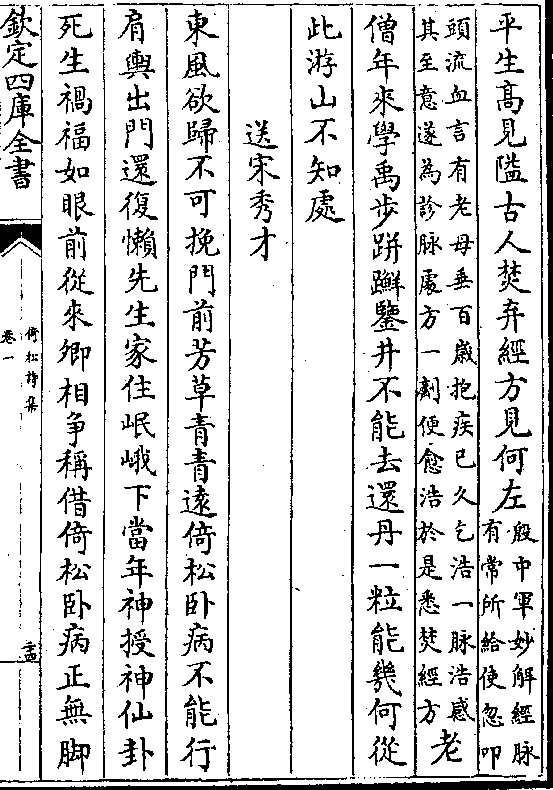 平生髙見隘古人焚弃經方見何左
殷中軍妙解經脉
有常所給使忽叩
頭流血言有老母垂百歲抱疾已久乞浩一脉浩感
其至意遂為診脉處方一劑便愈浩於是悉焚經方
老
僧年來學禹步跰𨇤鑒井不能去還丹一粒能幾何從
此游山不知處
送宋秀才
東風欲歸不可挽門前芳草青青逺倚松卧病不能行
肩輿出門還復懶先生家住岷峨下當年神授神仙卦
死生禍福如眼前從來卿相争稱借倚松卧病正無脚
欽定四庫全書
倚松詩集
卷一